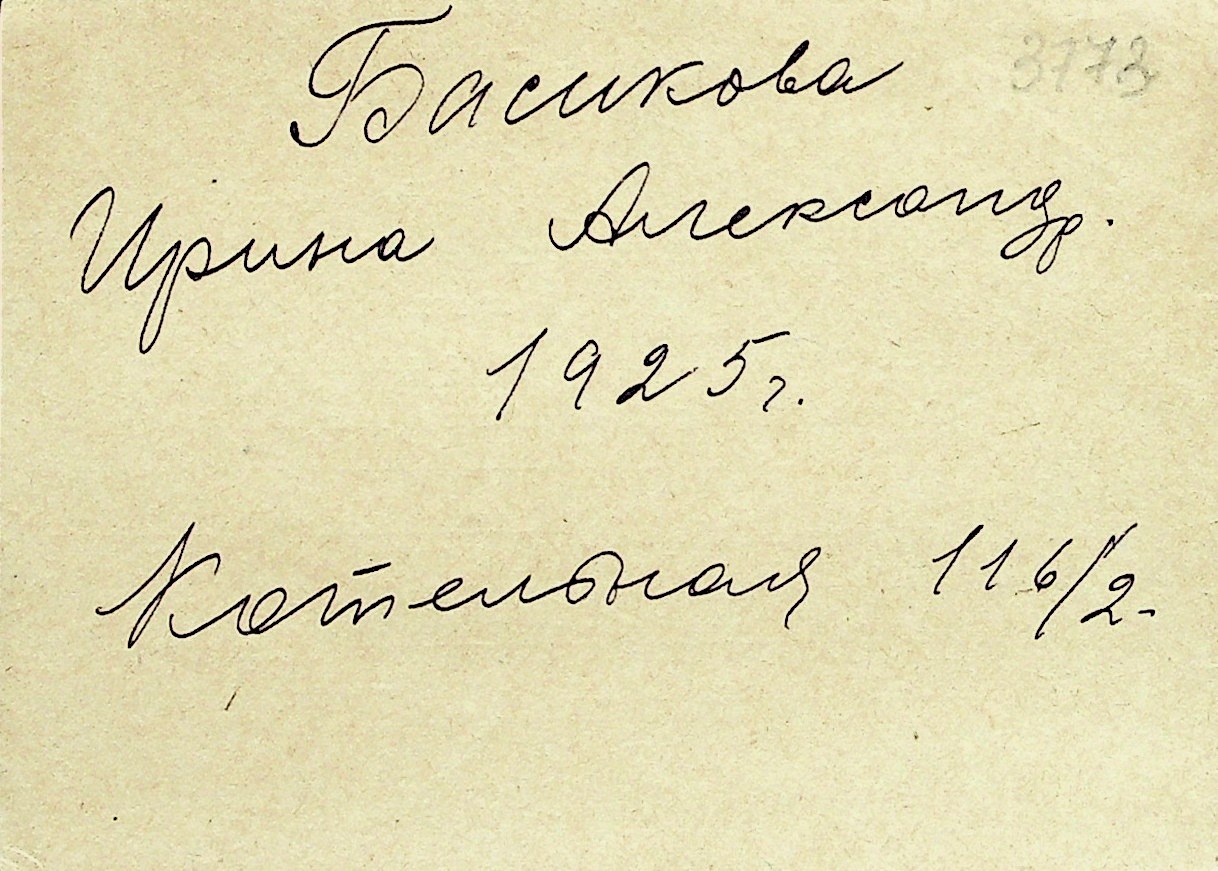 3173
Басикова
Ирина Александр.
1925г.
Котельная 116/2-